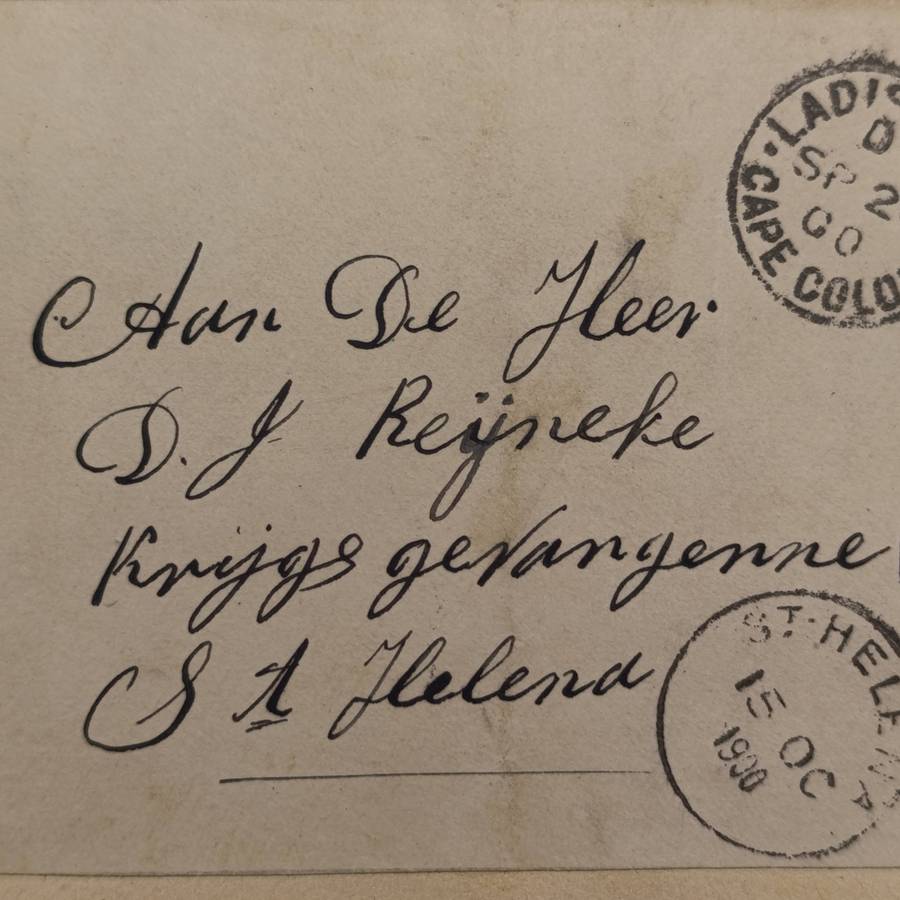 Aan De Heer
D. J Reijneke
Krijgs gevangenne
St Helena
CAPE COLO
SP 2
00
ST. HELENA
15 OC
1900